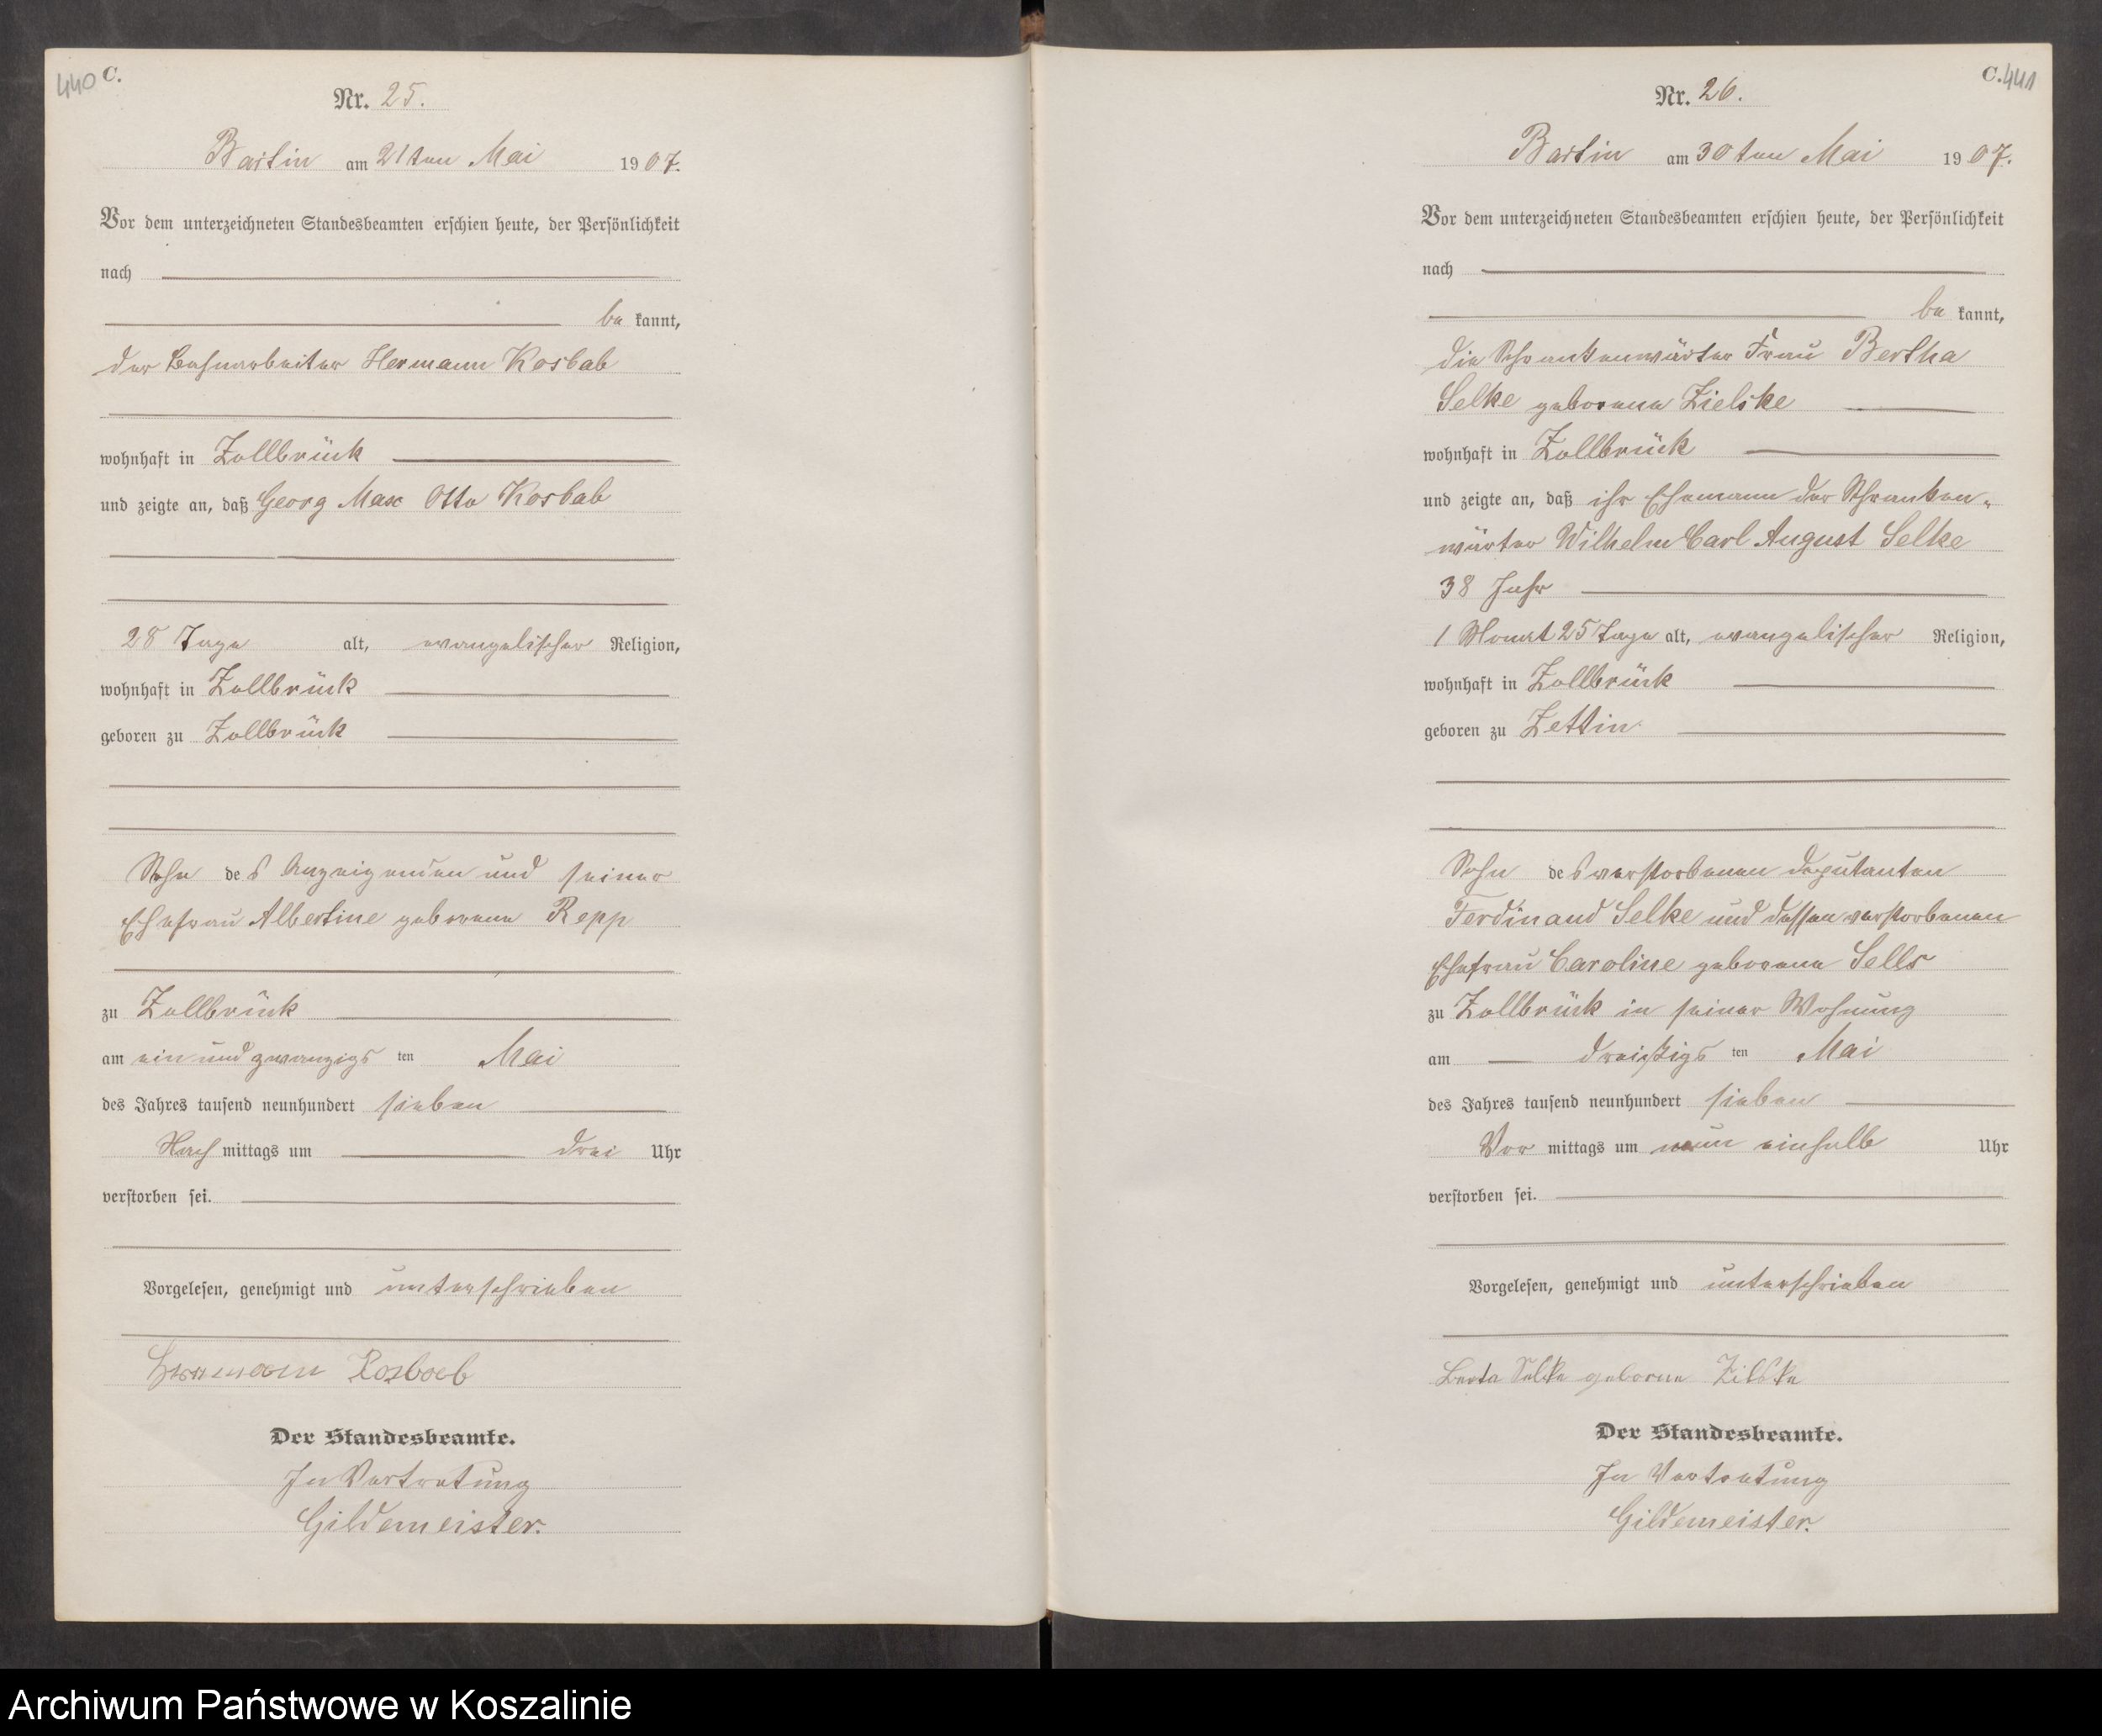 440 C.
Nr. 25.
Bartin am 21ten Mai 1907.
Vor dem unterzeichneten Standesbeamten erschien heute, der Persönlichkeit
nach
be kannt,
der Bahnarbeiter Hermann Kosbab
wohnhaft in Zollbrück
und zeigte an, daß Georg Max Otto Kosbab
28 Tage alt, evangelischer Religion,
wohnhaft in Zollbrück
geboren zu Zollbrück
Sohn des Anzeigenden und seiner
Ehefrau Albertine geborene Repp
zu Zollbrück
am ein und zwanzigsten Mai
des Jahres tausend neunhundert sieben
Nach mittags um drei Uhr
verstorben sei.
Vorgelesen, genehmigt und unterschrieben
Hermann Kosbab
Der Standesbeamte.
In Vertretung
Gildemeister.
C. 441
Nr. 26.
Bartin am 30ten Mai 1907.
Vor dem unterzeichneten Standesbeamten erschien heute, der Persönlichkeit
nach
be kannt,
die Schrankenwärter Frau Bertha
Selke geborene Zielske
wohnhaft in Zollbrück
und zeigte an, daß ihr Ehemann der Schranken-
wärter Wilhelm Carl August Selke
38 Jahr
1 Monat 25 Tage alt, evangelischer Religion,
wohnhaft in Zollbrück
geboren zu Zettin
Sohn des verstorbenen Deputanten
Ferdinand Selke und dessen verstorbenen
Ehefrau Caroline geborene Sells
zu Zollbrück in seiner Wohnung
am dreißigsten Mai
des Jahres tausend neunhundert sieben
Vor mittags um neun einhalb Uhr
verstorben sei.
Vorgelesen, genehmigt und unterschrieben
Berta Selke geborne Zilske
Der Standesbeamte.
In Vertretung
Gildemeister.
Archiwum Państwowe w Koszalinie